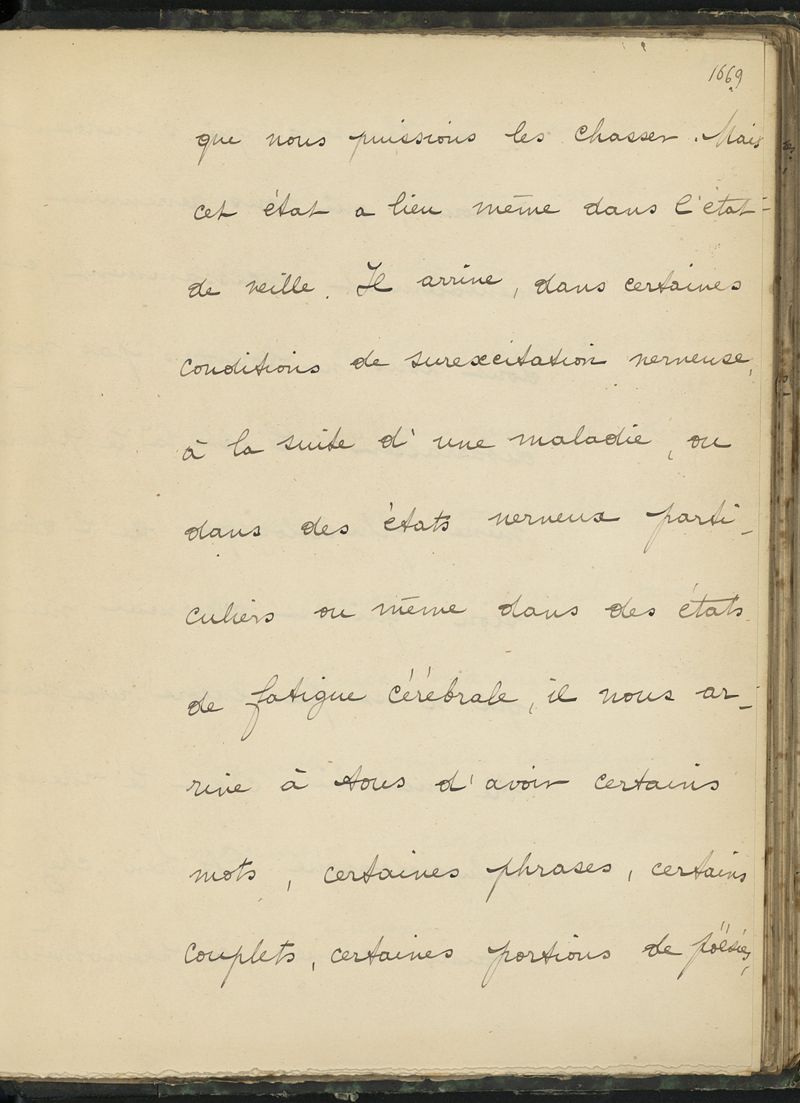 1669
que nous puissions les chasser. Mais
cet état a lieu même dans l'état
de veille. Il arrive, dans certaines
conditions de surexcitation nerveuse,
à la suite d'une maladie, ou
dans des états nerveux parti-
culiers ou même dans des états
de fatigue cérébrale, il nous ar-
rive à tous d'avoir certains
mots, certaines phrases, certains
couplets, certaines portions de poësies,